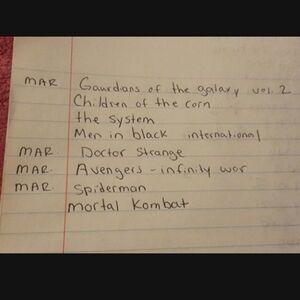 MAR Gaurdians of the galaxy vol. 2
Children of the corn
the system
Men in black international
MAR. Doctor Strange
MAR. Avengers - infinity war
MAR. Spiderman
Mortal Kombat